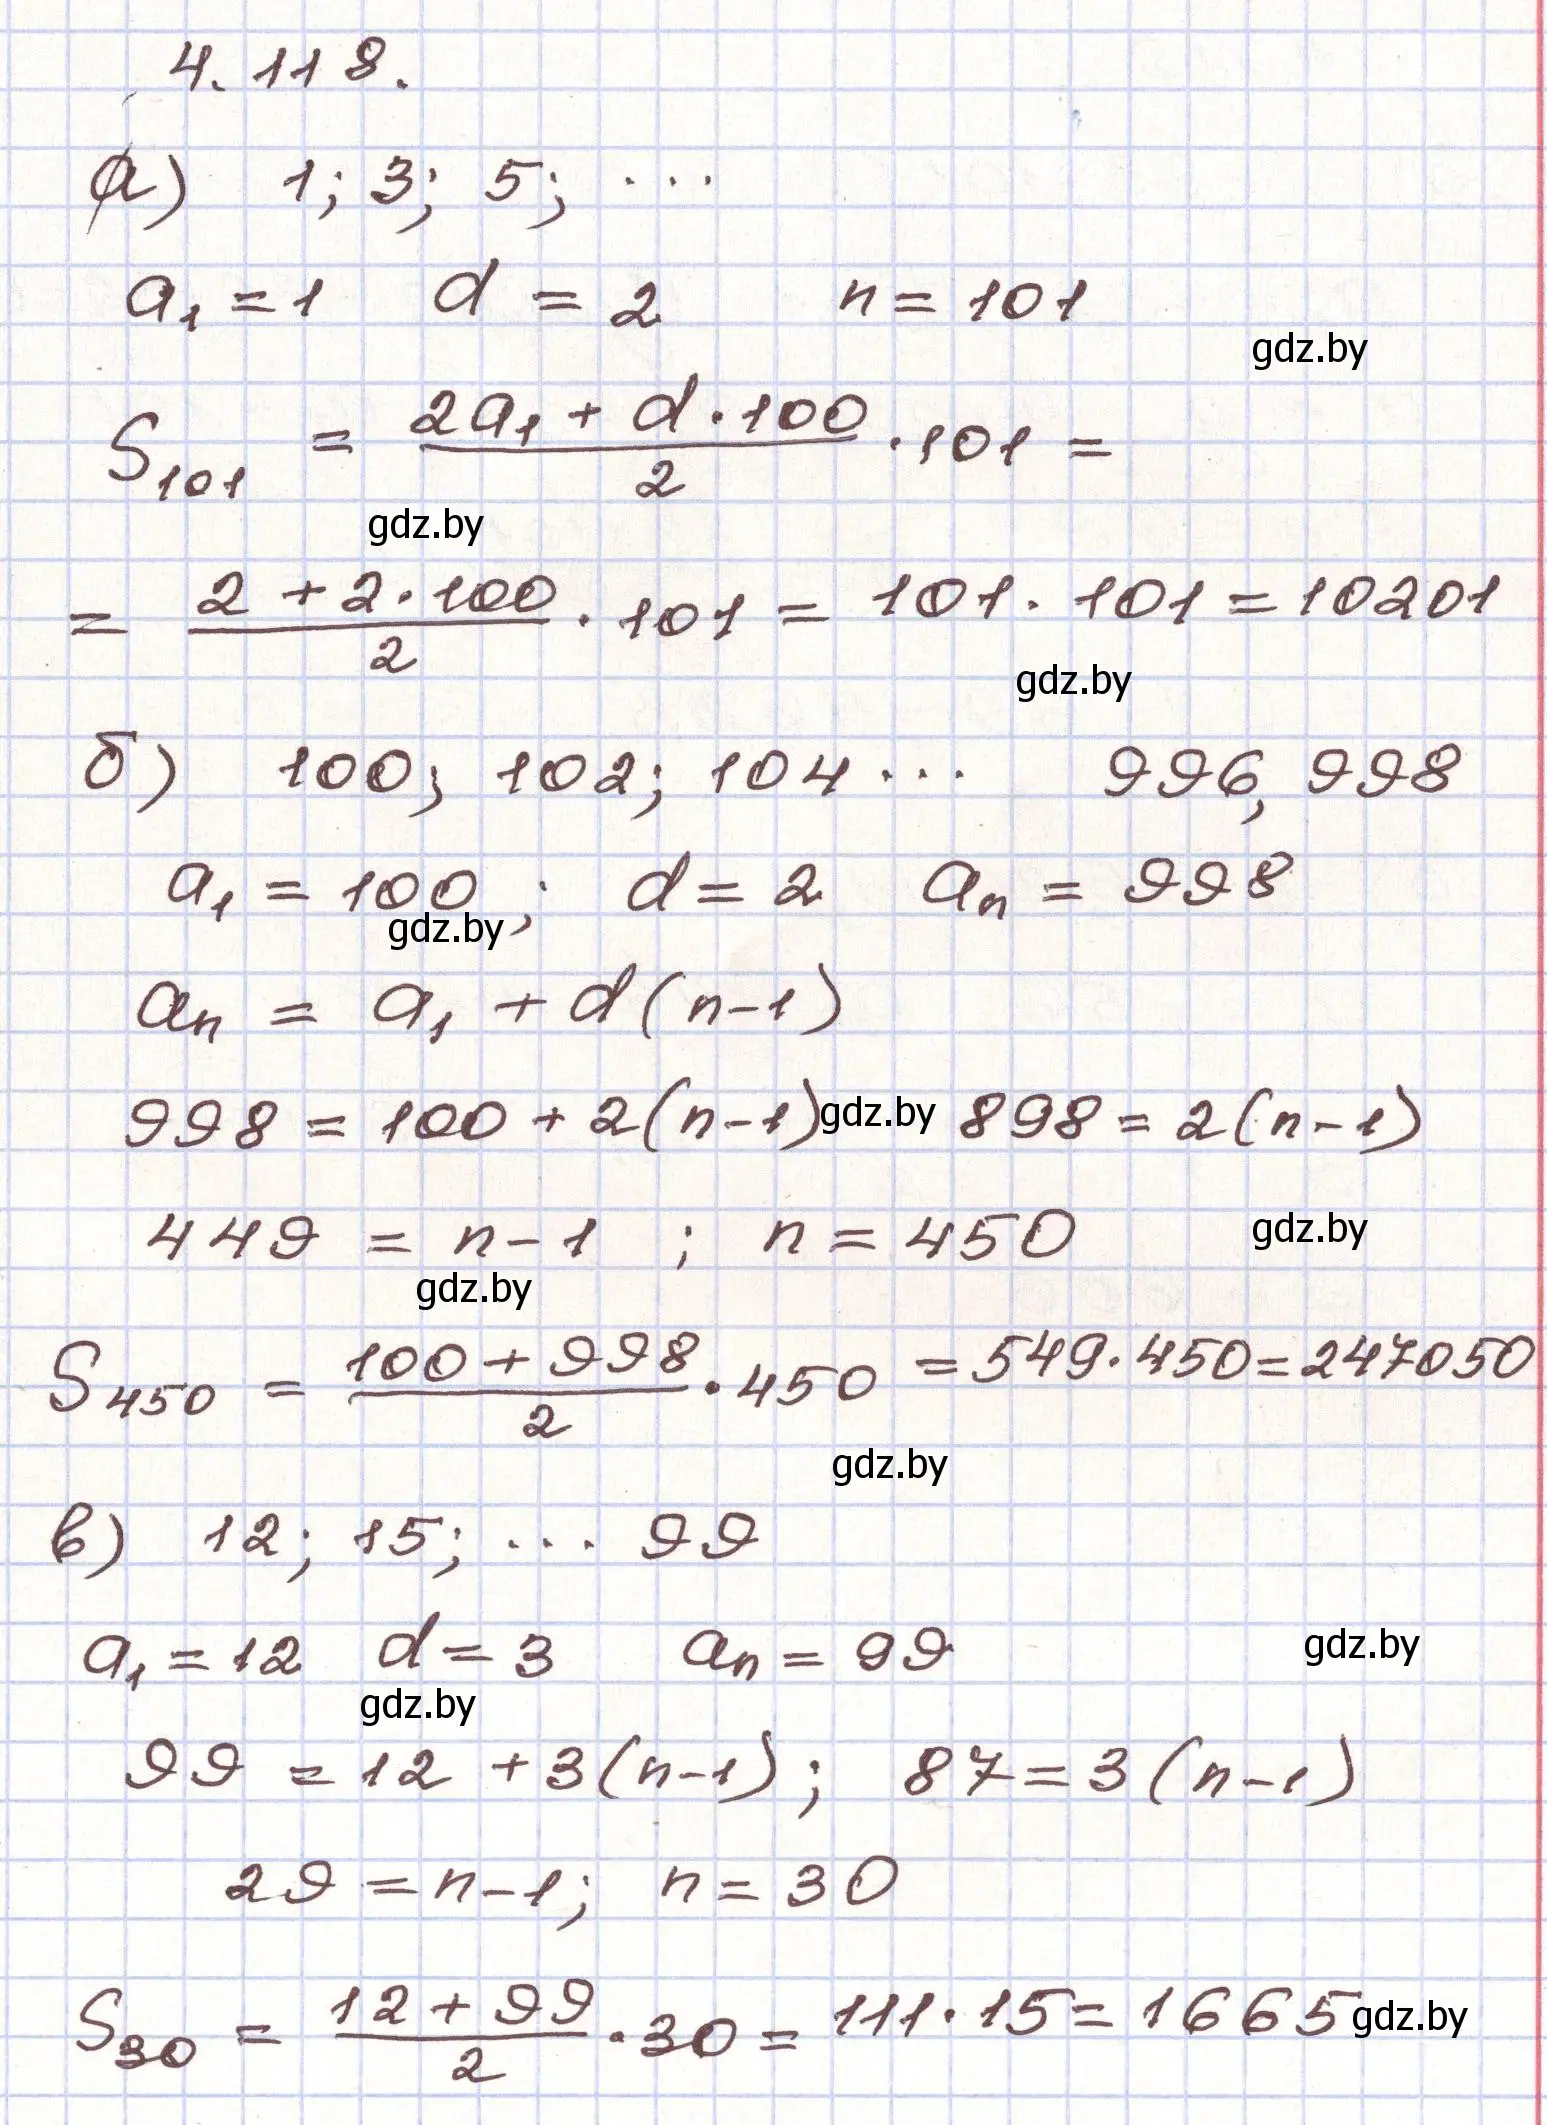 4.118.
а) 1; 3; 5; ...
a₁ = 1 d = 2 n = 101
gdz.by
S₁₀₁ = (2a₁ + d · 100)/2 · 101 =
gdz.by
= (2 + 2 · 100)/2 · 101 = 101 · 101 = 10201
gdz.by
б) 100; 102; 104 ... 996, 998
a₁ = 100; d = 2 aₙ = 998
gdz.by
aₙ = a₁ + d(n-1)
998 = 100 + 2(n-1) gdz.by 898 = 2(n-1)
449 = n-1 ; n = 450 gdz.by
gdz.by
S₄₅₀ = (100 + 998)/2 · 450 = 549 · 450 = 247050
gdz.by
в) 12; 15; ... 99
a₁ = 12 d = 3 aₙ = 99 gdz.by
gdz.by
99 = 12 + 3(n-1); 87 = 3(n-1)
29 = n-1; n = 30
S₃₀ = (12 + 99)/2 · 30 = 111 · 15 = 1665 gdz.by